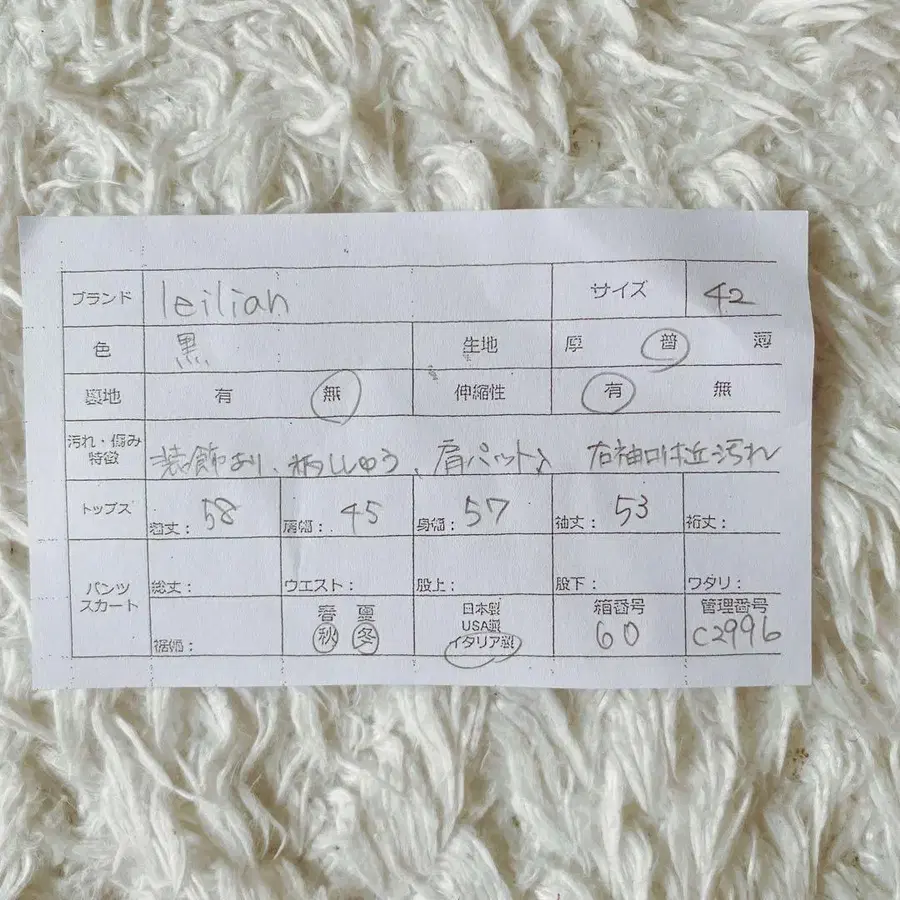 ブランド leilian サイズ 42
色 黒 生地 厚 普 薄
裏地 有 無 伸縮性 有 無
汚れ・傷み
特徴 装飾あり、柄ししゅう、肩パット、 右袖口付近汚れ
トップス 着丈: 58 肩幅: 45 身幅: 57 袖丈: 53 裄丈:
パンツ
スカート
総丈: ウエスト: 股上: 股下: ワタリ:
裾幅: 春 夏 秋 冬
日本製
USA製
イタリア製
箱番号 60
管理番号 C2996